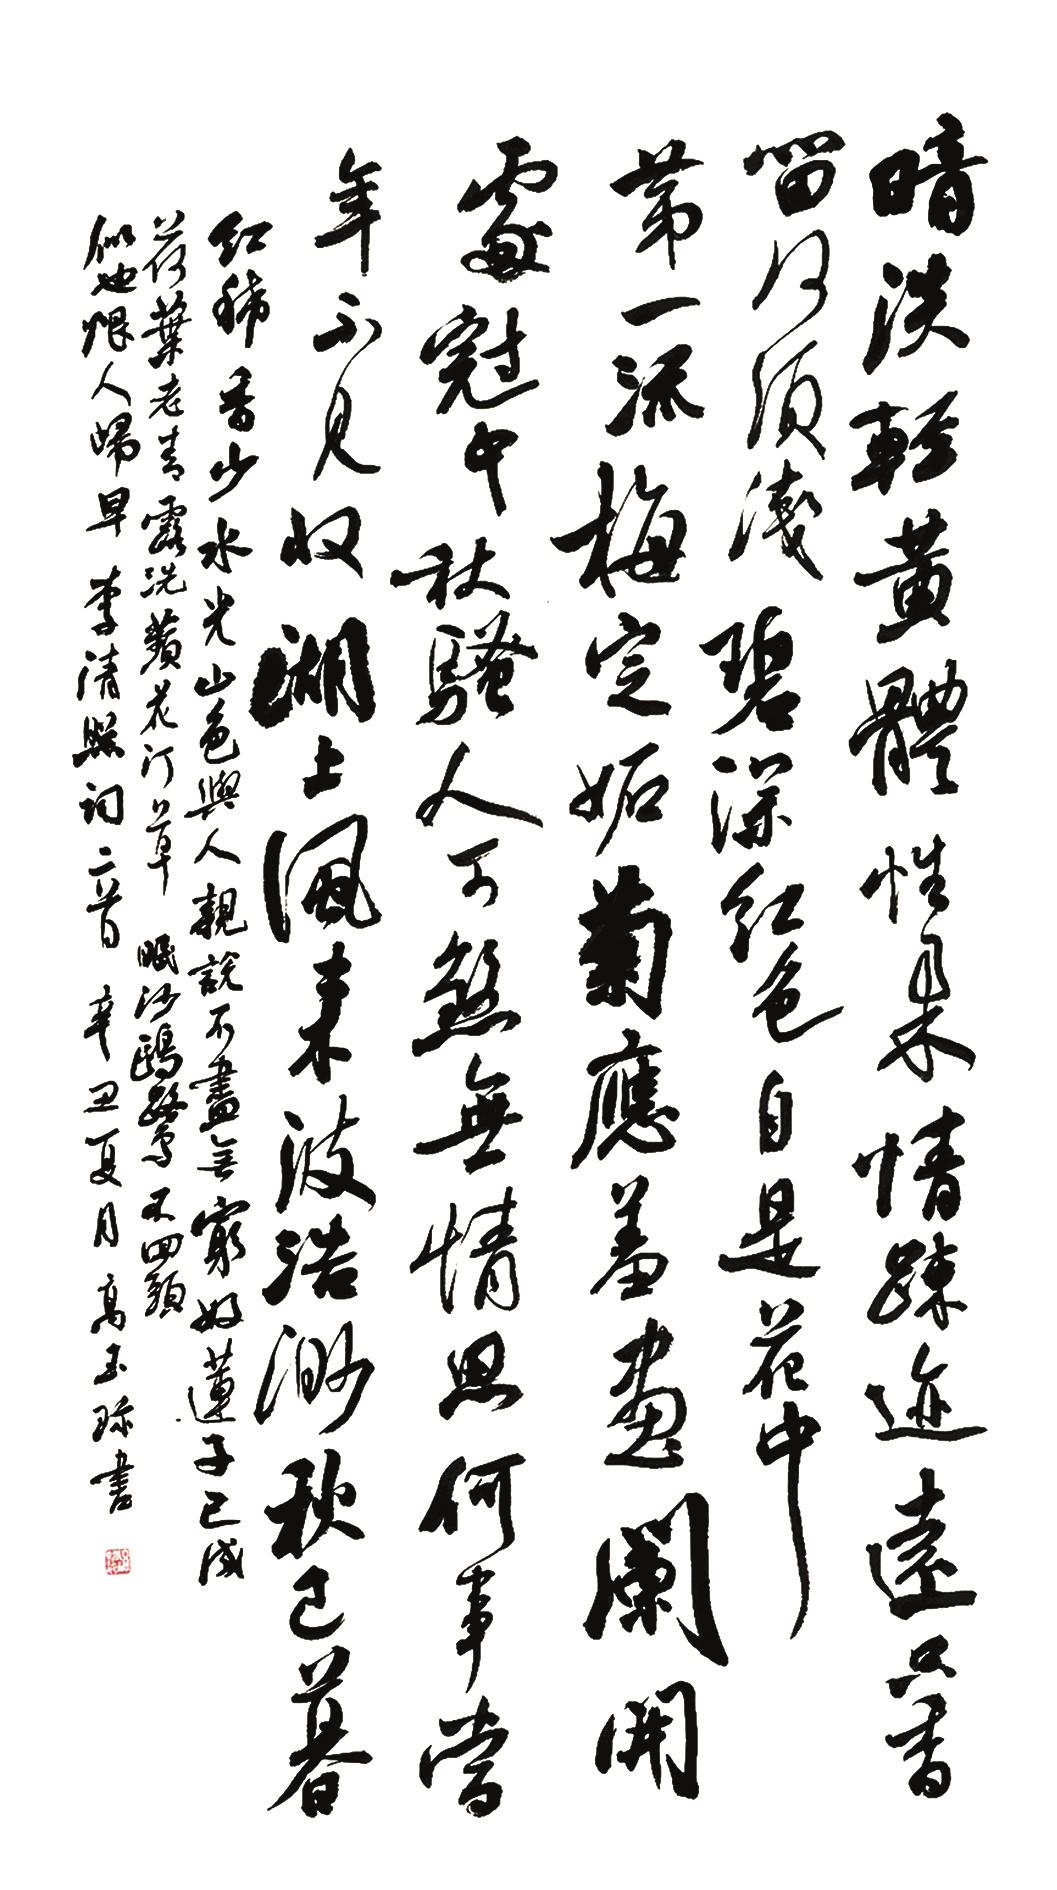 暗淡輕黃體性柔情疎迹遠只香
留何須淺碧深紅色自是花中
第一流梅定妬菊應羞畫闌開
處冠中秋騷人可煞無情思何事當
年不見收湖上風來波浩渺秋已暮
紅稀香少水光山色與人親說不盡無窮好蓮子已成
荷葉老青露洗蘋花汀草眠沙鷗鷺不回頭
似也恨人歸早李清照詞二首辛丑夏月高玉書